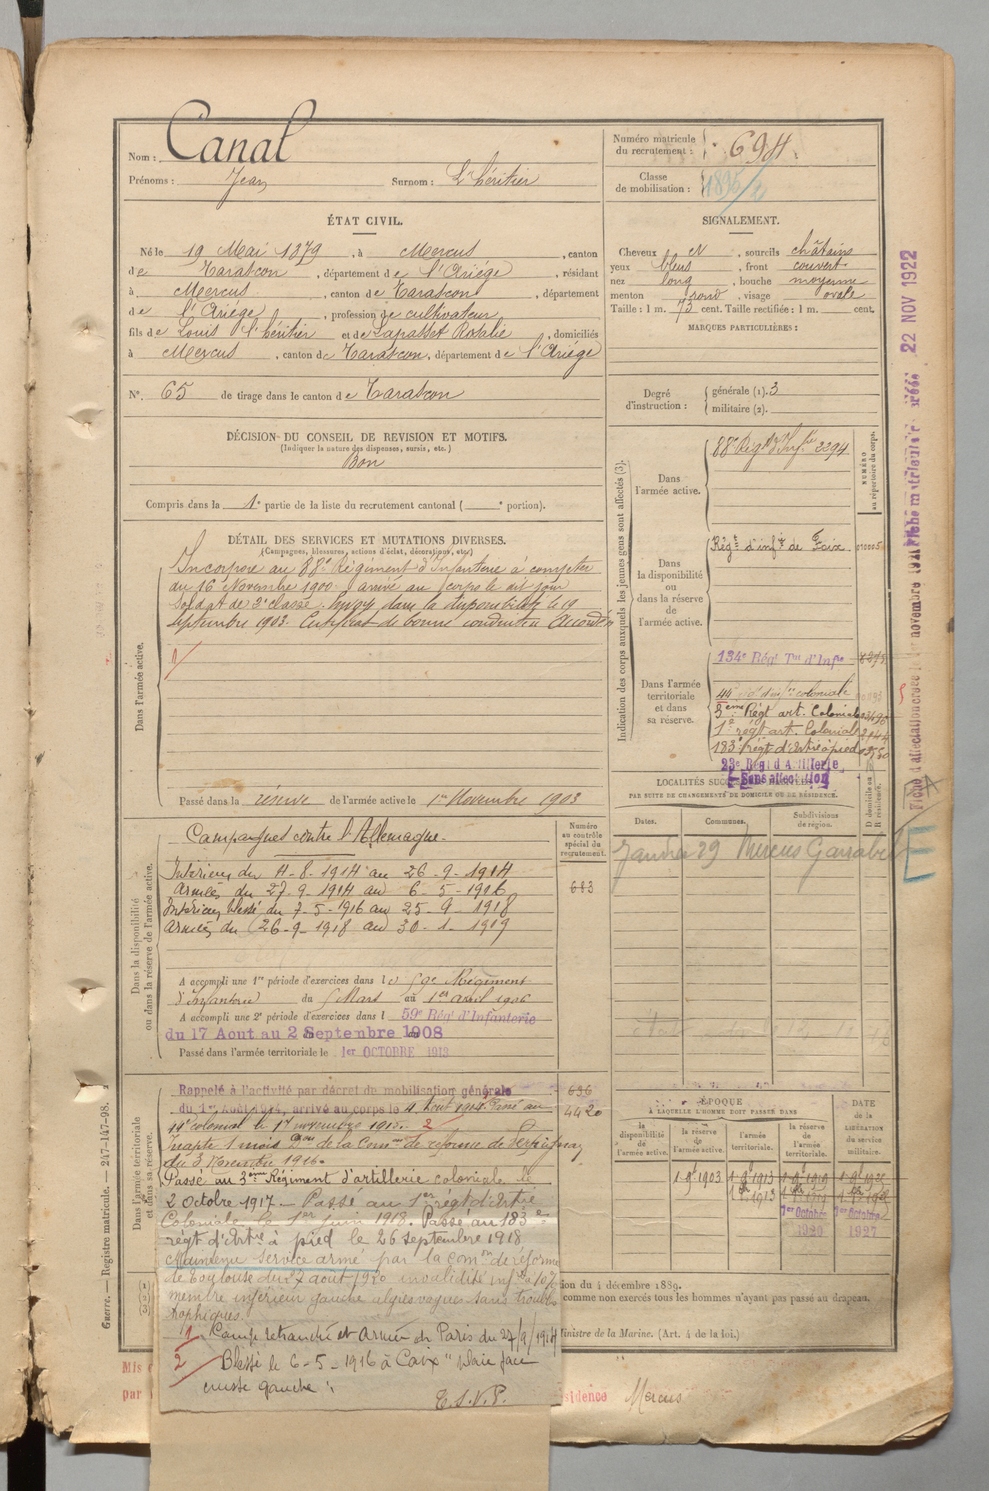 Nom : Canal
Prénoms : Jean Surnom : L'héritier
Numéro matricule du recrutement : 694
Classe de mobilisation :
ÉTAT CIVIL.
Né le 19 Mai 1879, à Mercus, canton
de Tarascon, département de l'Ariége, résidant
à Mercus, canton de Tarascon, département
de l'Ariége, profession de cultivateur
fils de Louis l'héritier et de Lapasset Rosalie, domiciliés
à Mercus, canton de Tarascon, département de l'Ariége
SIGNALEMENT.
Cheveux N, sourcils châtains
yeux bleus, front couvert
nez long, bouche moyenne
menton rond, visage ovale
Taille : 1 m. 73 cent. Taille rectifiée : 1 m. cent.
MARQUES PARTICULIÈRES :
N°. 65 de tirage dans le canton de Tarascon
Degré d'instruction : générale (1). 3
militaire (2).
DÉCISION DU CONSEIL DE REVISION ET MOTIFS.
(Indiquer la nature des dispenses, sursis, etc.)
Bon
Compris dans la 1e partie de la liste du recrutement cantonal ( e portion).
DÉTAIL DES SERVICES ET MUTATIONS DIVERSES.
(Campagnes, blessures, actions d'éclat, décorations, etc.)
Dans l'armée active.
Incorporé au 88e Régiment d'Infanterie à compter
du 16 Novembre 1900 arrivé au corps le dit jour
Soldat de 2e classe. Envoyé dans la disponibilité le 19
septembre 1903. Certificat de bonne conduite Accordé
1/
Passé dans la réserve de l'armée active le 1er Novembre 1903
Indication des corps auxquels les jeunes gens sont affectés (3).
NUMÉRO au répertoire du corps.
Dans l'armée active.
88e Régt d'Infie 2294
Dans la disponibilité ou dans la réserve de l'armée active.
Régt d'infie de Foix
Dans l'armée territoriale et dans sa réserve.
134e Régt Tal d'Infie
44e coloniale
3eme Régt art. Coloniale
1er régt art. Colonial
183e Régt d'Artie à pied
23e Régt d'Artillerie
Sans affectation
LOCALITÉS SUCCESSIVES HABITÉES
PAR SUITE DE CHANGEMENTS DE DOMICILE OU DE RÉSIDENCE.
Dates. Communes. Subdivisions de région. D domicile ou R résidence.
Janvier 29 Mercus Garrabet
Dans la disponibilité ou dans la réserve de l'armée active.
Campagnes contre l'Allemagne
Numéro au contrôle spécial du recrutement.
Intérieur du 4-8-1914 au 26-9-1914
Armées du 27-9-1914 au 6-5-1916
683
Intérieur blessé du 7-5-1916 au 25-9-1918
Armées du 26-9-1918 au 30-1-1919
A accompli une 1re période d'exercices dans le 59e Régiment
d'Infanterie du 5 Mars au 1er avril 1906
A accompli une 2e période d'exercices dans l 59e Rég' d'Infanterie
du 17 Aout au 2 Septembre 1908
Passé dans l'armée territoriale le 1er OCTOBRE 1913
Dans l'armée territoriale et dans sa réserve.
Rappelé à l'activité par décret de mobilisation générale
636
du 1er Août 1914, arrivé au corps le 4 Aout 1914. Passé au
4420
44e colonial le 17 novembre 1915. 2/
Inapte 1 mois don de la Comon de réforme de Perpignan
du 3 Novembre 1916.
Passé au 3eme Régiment d'artillerie coloniale le
2 Octobre 1917. Passé au 1er régt d'Artie
Coloniale le 1er juin 1918. Passé au 183e
régt d'Artie à pied le 26 septembre 1918
Maintenu service armé par la Comon de réforme
de Toulouse du 27 août 1920 invalidité infre à 10%
membre inférieur gauche algies vagues sans troubles
trophiques.
1/ Camp retranché et Armée de Paris du 27/9/1914
2/ Blessé le 6-5-1916 à Caix "plaie face
cuisse gauche"
T.S.V.P.
ÉPOQUE
À LAQUELLE L'HOMME DOIT PASSER DANS
la disponibilité de l'armée active. la réserve de l'armée active. l'armée territoriale. la réserve de l'armée territoriale.
DATE de la LIBÉRATION du service militaire.
1-9-1903
1er Octobre 1920
1er Octobre 1927
tion du 4 décembre 1889.
comme non exercés tous les hommes n'ayant pas passé au drapeau.
Ministre de la Marine. (Art. 4 de la loi.)
Mis
par
sidence Mercus
Guerre. — Registre matricule. — 247-147-98.
22 NOV 1922